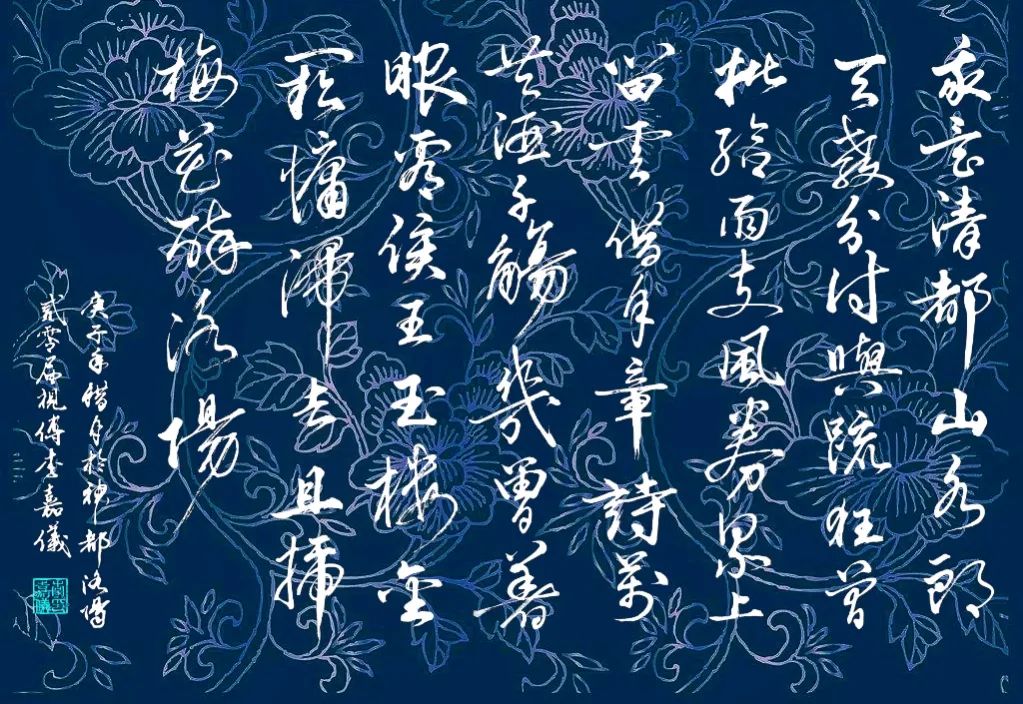 我是清都山水郎
天教分付與疏狂曾
批給雨支風券累上
留雲借月章詩萬
首酒千觴幾曾著
眼看侯王玉樓金
闕慵歸去且插
梅花醉洛陽
庚子年腊月於神都洛陽
貳零屆視傳李嘉儀